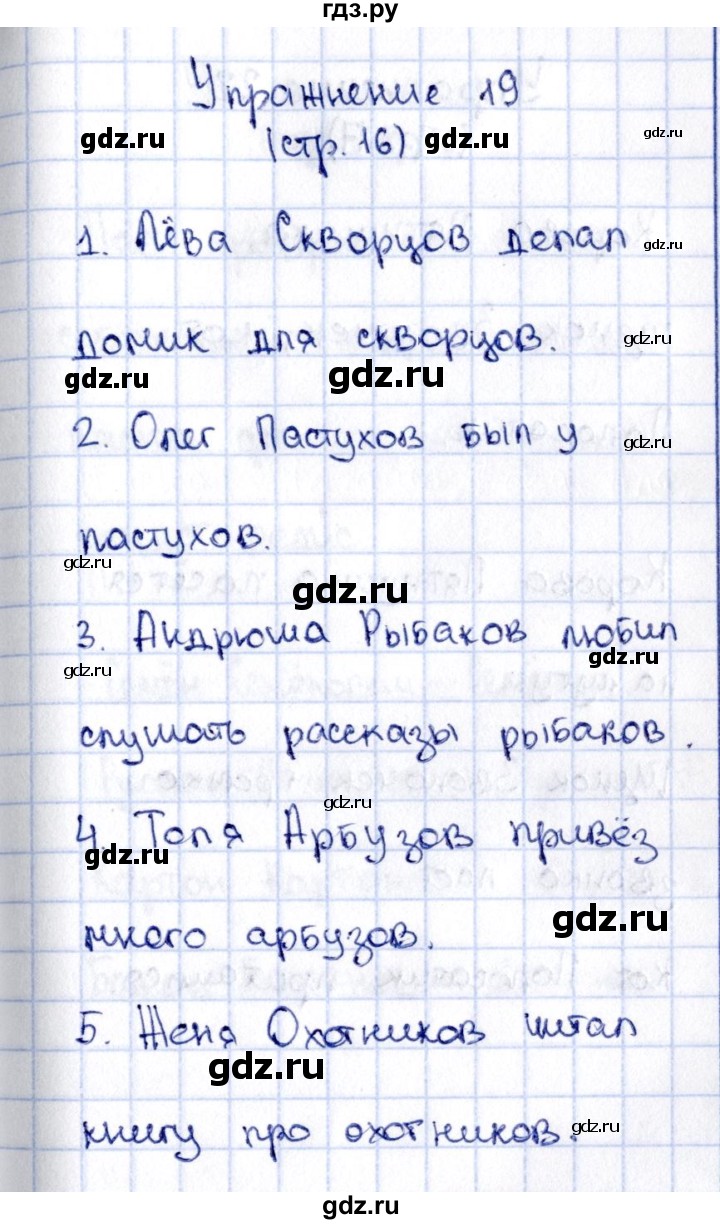 гдз.ру
Упражнение 19
gdz.ru (стр. 16) gdz.ru gdz.ru
1. Лёва Скворцов делал gdz.ru
домик для скворцов. gdz.ru
gdz.ru gdz.ru
2. Олег Пастухов был у gdz.ru
пастухов.
gdz.ru gdz.ru
3. Андрюша Рыбаков любил
gdz.ru gdz.ru
слушать рассказы рыбаков.
gdz.ru
4. Толя Арбузов привёз
gdz.ru
много арбузов. gdz.ru
5. Женя Охотников читал
gdz.ru
книгу про охотников. gdz.ru
gdz.ru